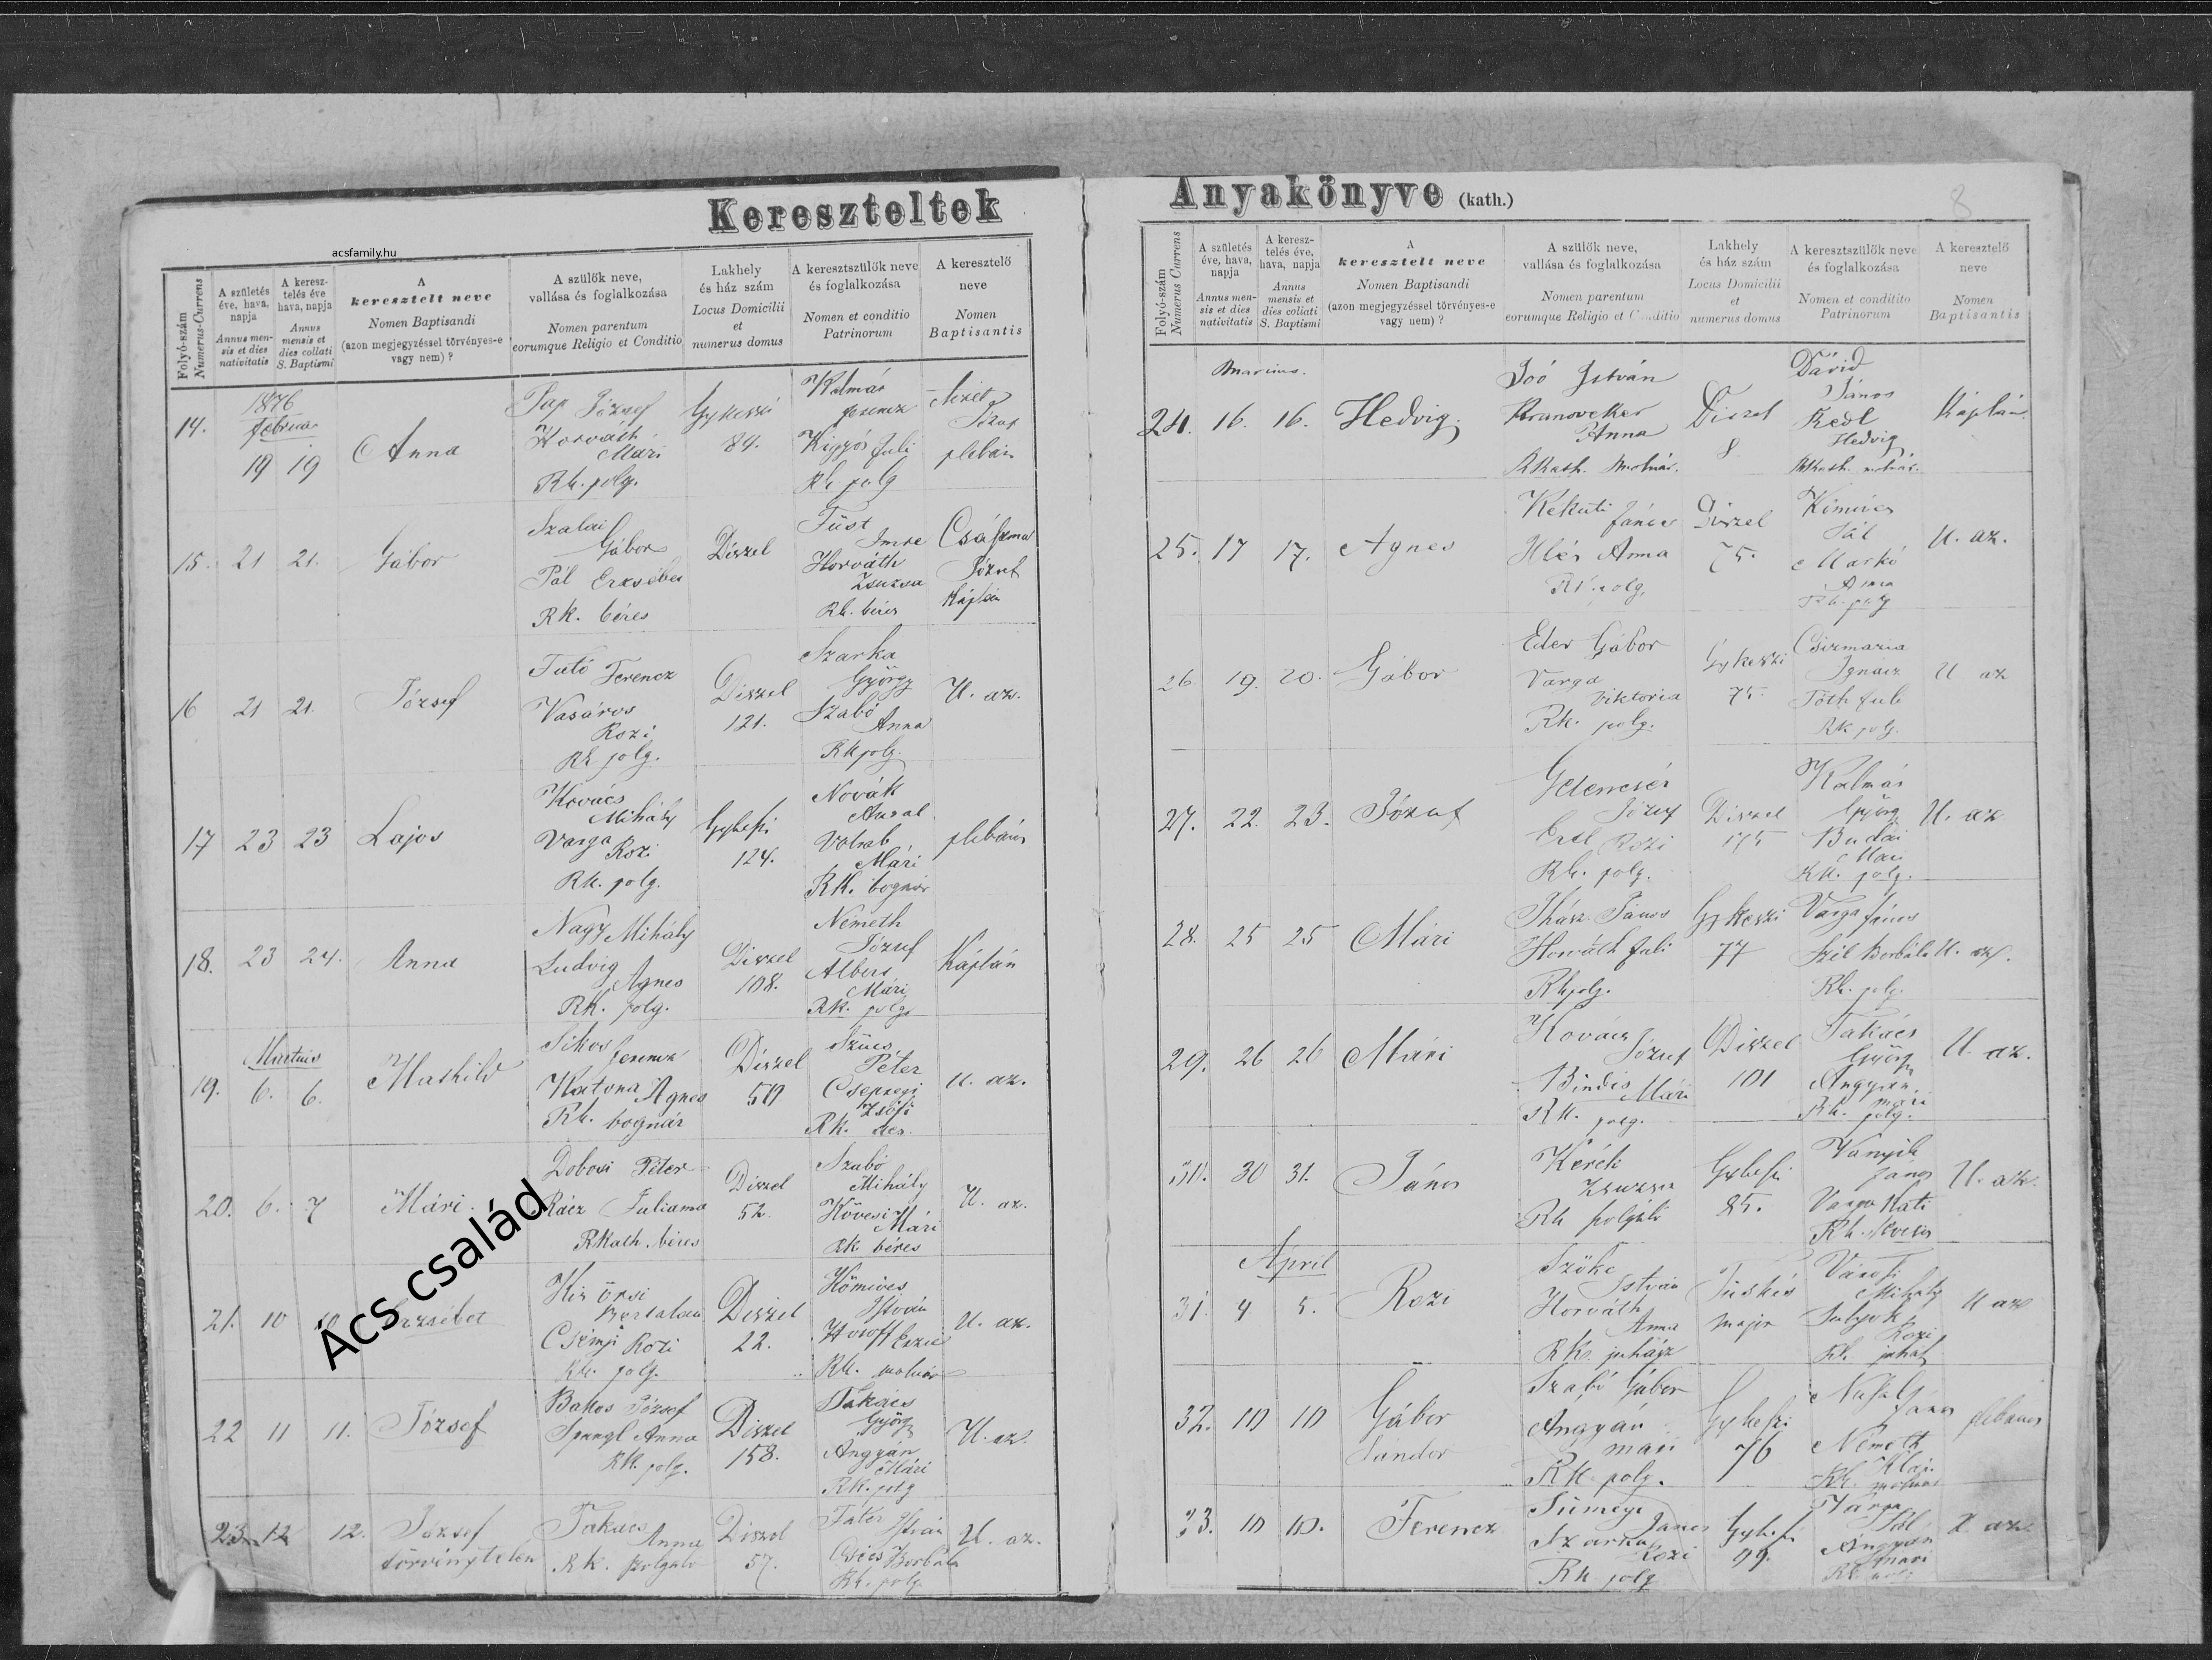 Kereszteltek
acsfamily.hu
Folyó-szám
Numerus-Currens
A születés
éve, hava,
napja
Annus men-
sis et dies
nativitatis
A keresz-
telés éve
hava, napja
Annus
mensis et
dies collati
S. Baptismi
A
keresztelt neve
Nomen Baptisandi
(azon megjegyzéssel törvényes-e
vagy nem) ?
A szülők neve,
vallása és foglalkozása
Nomen parentum
eorumque Religio et Conditio
Lakhely
és ház szám
Locus Domicilii
et
numerus domus
A keresztszülők neve
és foglalkozása
Nomen et conditio
Patrinorum
A keresztelő
neve
Nomen
Baptisantis
1876
14. 19 19 Anna
Pap József
Horváth
Mári
Rk. polg.
Gykeszi
84.
Kalmár
Ferencz
Juli
Rk polg
József
plebán
15. 21 21. Gábor
Szalai
Gábor
Pál Erzsébet
Rk. béres
Diszel
Füst
Imre
Horváth
Zsuzsa
Rk. béres
József
Káplán
16 21 21. József
Tutó Ferencz
Vasáros
Rozi
Rk polg.
Diszel
121.
Szarka
György
Szabó
Anna
Rk polg.
U. az.
17 23 23 Lajos
Kovács
Mihály
Varga
Rozi
Rk. polg.
124.
Novák
Antal
Mári
Rk. bognár
plebános
18. 23 24. Anna
Nagy Mihály
Ludvig
Agnes
Rk. polg.
Diszel
108.
Németh
József
Albers
Mári
Rk. polg.
Káplán
Martius
19. 6. 6. Mathild
Sikos
Ferencz
Katona Agnes
Rk. bognár
Diszel
50
Szücs
Péter
Zsófi
Rk. ács
U. az.
20. 6. 7 Mári.
Dobosi Péter
Rácz Juliama
RKath. béres
Diszel
52.
Szabó
Mihály
Kövesi
Mári
Rk béres
U. az.
Ács család
21. 10 10
Kis örsi
Bertalan
Rozi
Rk. polg.
Diszel
22.
Kömives
István
Rk. molnár
U. az.
22 11 11. József
Bakos József
Spangl Anna
Rk. polg.
Diszel
158.
Takács
György
Angyán
Mári
Rk. polg
U. az.
23. 12 12. József
törvénytelen
Takács
Anna
Rk. szolgáló
Diszel
57.
István
Borbála
Rk. polg
U. az.
Anyakönyve (kath.)
8
Folyó-szám
Numerus Currens
A születés
éve, hava,
napja
Annus men-
sis et dies
nativitatis
A keresz-
telés éve,
hava, napja
Annus
mensis et
dies collati
S. Baptismi
A
keresztelt neve
Nomen Baptisandi
(azon megjegyzéssel törvényes-e
vagy nem) ?
A szülők neve,
vallása és foglalkozása
Nomen parentum
eorumque Religio et Conditio
Lakhely
és ház szám
Locus Domicilii
et
numerus domus
A keresztszülők neve
és foglalkozása
Nomen et conditito
Patrinorum
A keresztelő
neve
Nomen
Baptisantis
Marcius.
24. 16. 16. Hedvig.
Joó István
Anna
RKath. molnár.
Diszel
8
Dávid
János
Redl
Hedvig
RKath. molnár.
Káplán
25. 17 17. Agnes
Kekuti János
Illés Anna
Diszel
75.
Kömives
Pál
Markó
Anna
Rk. polg
U. az.
26. 19. 20. Gábor
Eder Gábor
Varga
Viktoria
Rk. polg.
Gykeszi
75.
Csizmazia
Ignácz
Tóth Juli
Rk polg.
U az
27. 22. 23. József
Gelencsér
József
Ertl Rozi
Rk. polg.
Diszel
175
Kalmár
György
Budai
Mári
Rk. polg.
U. az
28. 25 25 Mári
Ihász János
Horváth Juli
Rk polg.
Gykeszi
77
Varga János
Szél Borbála
Rk. polg.
U. az.
29. 26 26 Mári
Kovács
József
Bindis Mári
Rk. polg.
Diszel
101
Takács
György
Angyán
Mári
Rk. polg.
U. az.
30. 30 31. János
Keréti
Zsuzsa
Rk szolgáló
85.
Vanyik
János
Varga Kati
U. az.
April
31. 4 5. Rozi
Szőke
István
Horváth
Anna
Rk. juhász
major
Mihály
Rozi
Rk.
U az
32. 10 10 Gábor
Sandor
Szabó Gábor
Angyán
mari
Rk polg.
76
János
Németh
Rk. molnár
plebanos
33. 10 10. Ferencz
Sümegi
János
Szarka
Rozi
Rk polg
99.
Varga
Pál
Angyán
mari
U az.